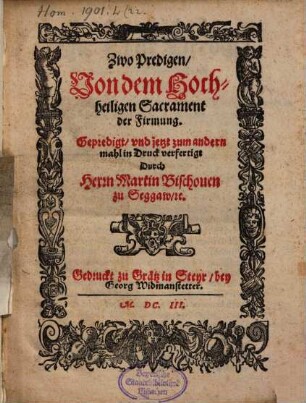 Hom. 1901. 4/22.
Zwo Predigen/
Von dem Hoch-
heiligen Sacrament
der Firmung.
Gepredigt/ vnd jetzt zum andern
mahl in Druck verfertigt
Durch
Herrn Martin Bischouen
zu Seggaw/ꝛc.
Gedruckt zu Grätz in Steyr/ bey
Georg Widmanstetter.
M. DC. III.
Bayerische
Staatsbibliothek
München